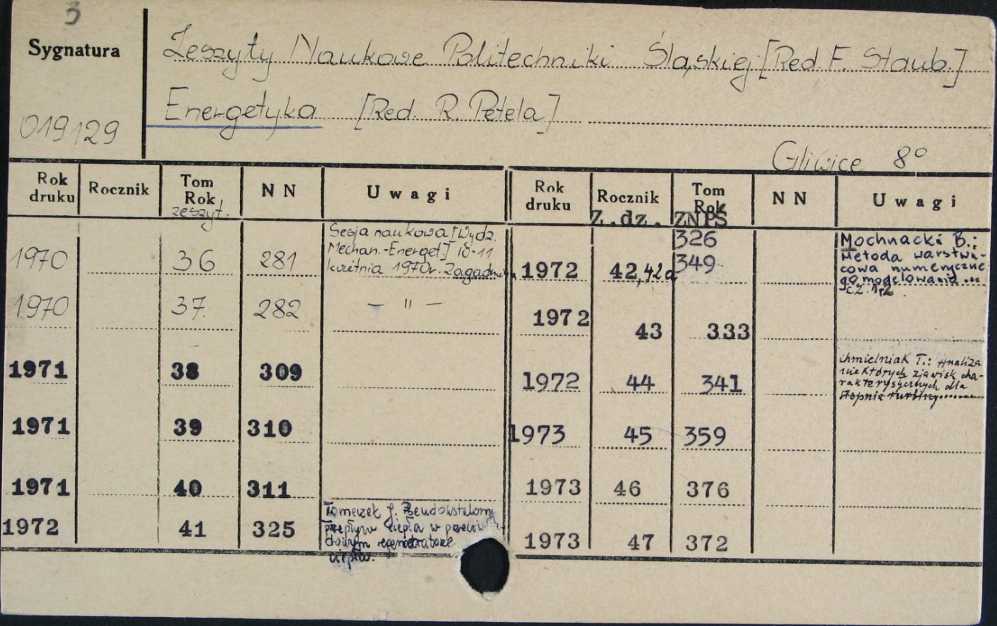 3
Sygnatura
Zeszyty Naukowe Politechniki Śląskiej [Red. F. Staub.]
019129
Energetyka [Red. R. Petela]
Gliwice 8°
Rok druku Rocznik Tom Rok zeszyt. N N Uwagi
1970 36 281 Sesja naukowa [Wydz.
Mechan.-Energet.] 10-11
kwietnia 1970r. Zagadn.
1970 37. 282 — " —
1971 38 309
1971 39 310
1971 40 311
1972 41 325
przepływ ciepła w
regeneratorze
Rok druku Rocznik Z.dz. Tom Rok ZNPS N N Uwagi
1972 42,42a 326
349
Mochnacki B.:
Metoda warstwi-
cowa numeryczne
go modelowania ...
cz. 1,2
1972 43 333
1972 44 341 Chmielniak T.: Analiza
niektórych zjawisk cha-
rakterystycznych dla
stopnia turbiny......
1973 45 359
1973 46 376
1973 47 372